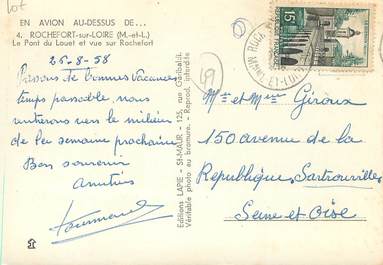 Lot
EN AVION AU-DESSUS DE...
4. ROCHEFORT-sur-LOIRE (M.-et-L.)
Le Pont du Louet et vue sur Rochefort
25-8-58
Passons de bonnes vacances
temps passable, nous
rentrerons vers le milieu
de la semaine prochaine
Bon souvenir
Amitiés
49
Editions LAPIE - St-MAUR - 125, rue Garibaldi
Véritable photo au bromure. - Reprod. interdite
15
Mr et Mme Giroux
150 avenue de la
République, Sartrouville
Seine et Oise